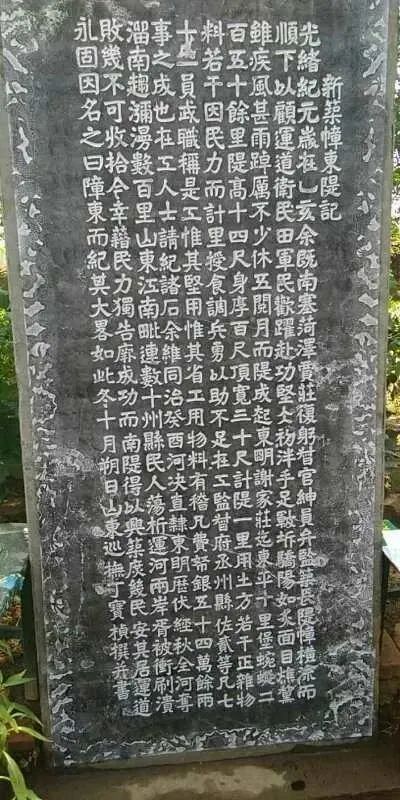 新築障東隄記
光緒紀元歲在乙亥余既南塞菏澤賈莊復躬督官紳員弁監築長隄障橫流而
順下以顧運道衛民田軍民歡躍赴功堅仌初泮手足皸坼驕陽如炙面目憔黧
雖疾風甚雨踔厲不少休五閱月而隄成起東明謝家莊迄東平十里堡蜿蜒二
百五十餘里隄高十四尺身厚百尺頂寬三十尺計隄一里用土方若干正雜物
料若干因民力而計里授食調兵勇以助不足在工監督府丞州縣佐貳等凡七
十一員武職稱是工惟其堅用惟其省工用物料有稽凡費帑銀五十四萬餘兩
事之成也在工人士請紀諸石余維同治癸酉河決直隸東明歷伏經秋全河奪
溜南趨瀰漫數百里山東江南毗連數十州縣民人蕩析運河兩岸胥被衝刷潰
敗幾不可收拾今幸藉民力獨告厥成功而南隄得以興築庶幾民安其居運道
永固因名之曰障東而紀其大畧如此冬十月朔日山東巡撫丁寶楨撰并書